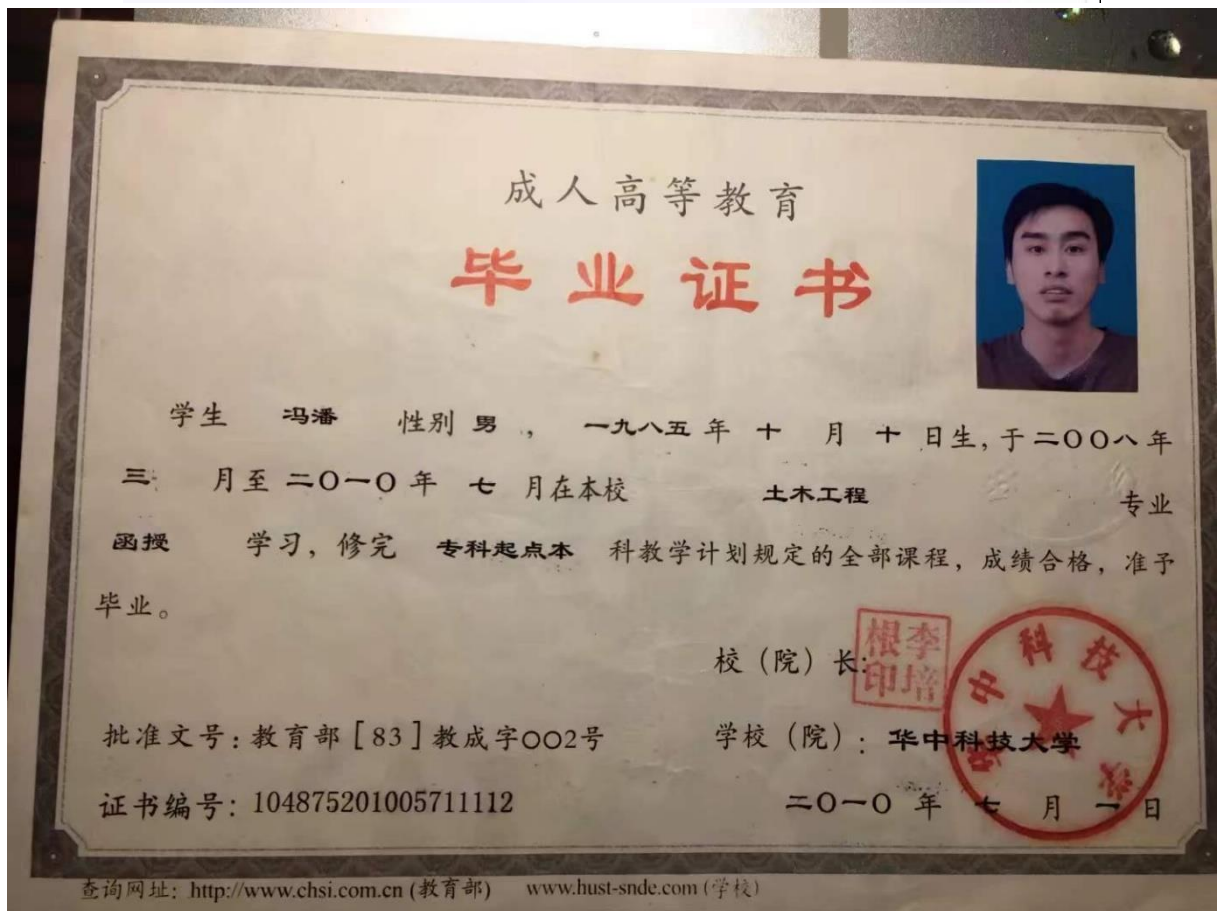 成人高等教育
毕业证书
学生 冯潘 性别 男 ， 一九八五 年 十 月 十 日生，于二〇〇八年
三 月至 二〇一〇 年 七 月在本校 土木工程 专业
函授 学习，修完 专科起点本 科教学计划规定的全部课程，成绩合格，准予
毕业。
校（院）长：
李培根印
批准文号：教育部［83］教成字〇〇2号
学校（院）：华中科技大学
华中科技大学
证书编号：104875201005711112
二〇一〇 年 七 月 一 日
查询网址：http://www.chsi.com.cn (教育部) www.hust-snde.com (学校)